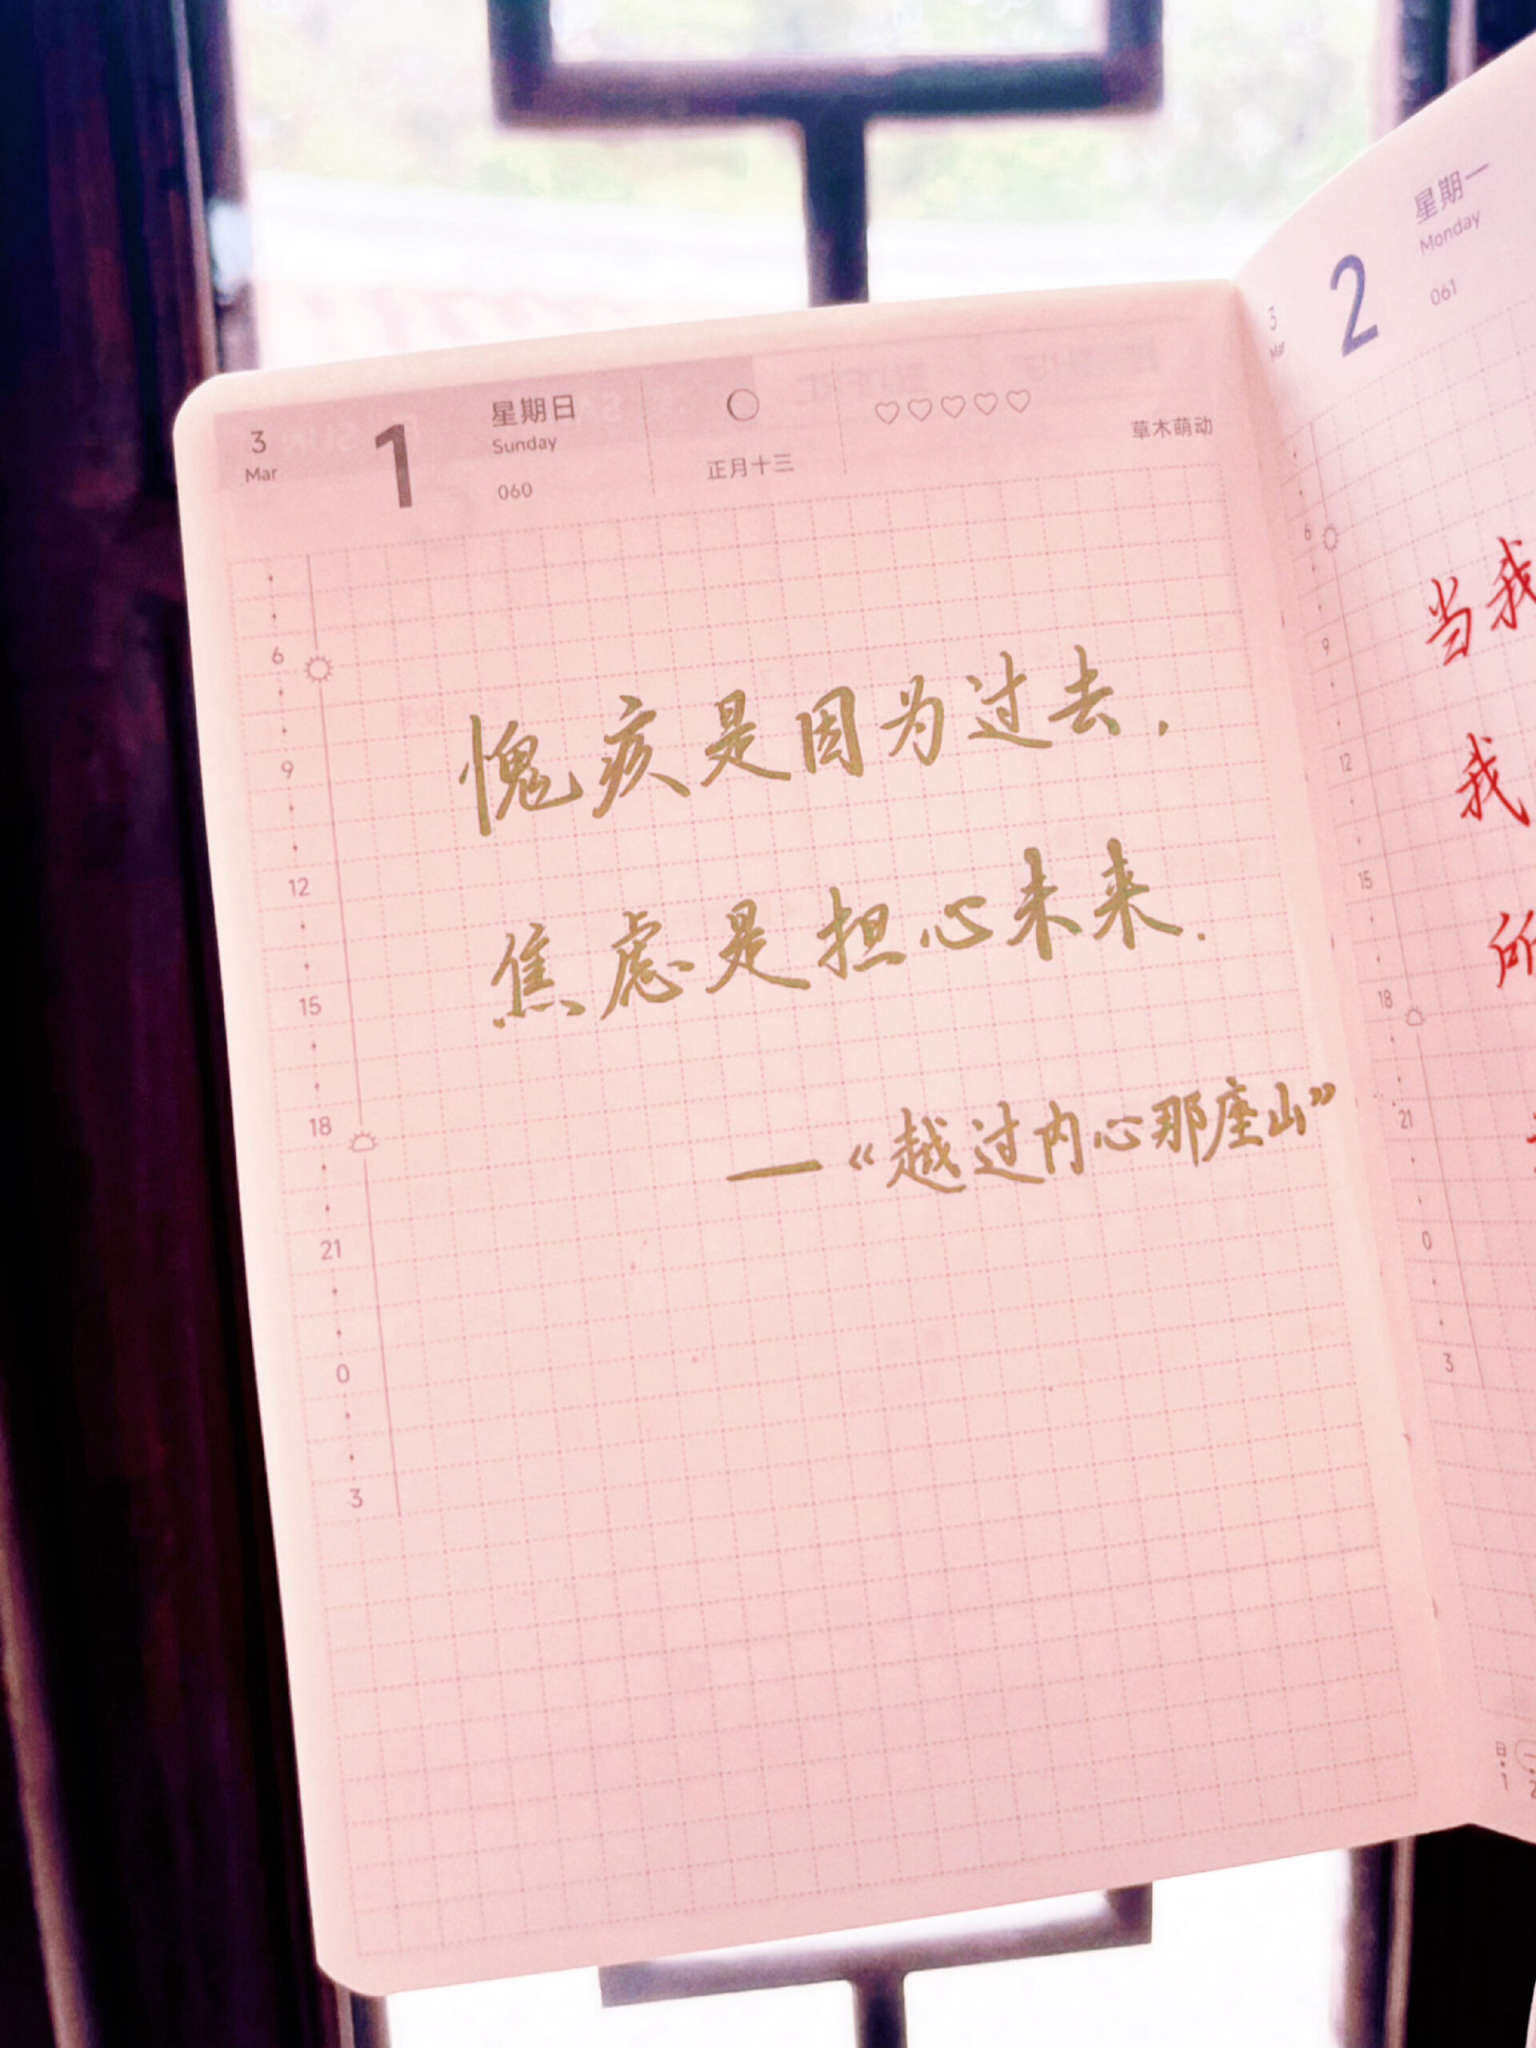 3 Mar
1
星期日
Sunday
060
正月十三
草木萌动
6
9
12
15
18
21
0
3
愧疚是因为过去,
焦虑是担心未来.
—《越过内心那座山”
3 Mar
2
星期一
Monday
061
6
9
12
15
18
21
0
3
当我
我
所
日
1